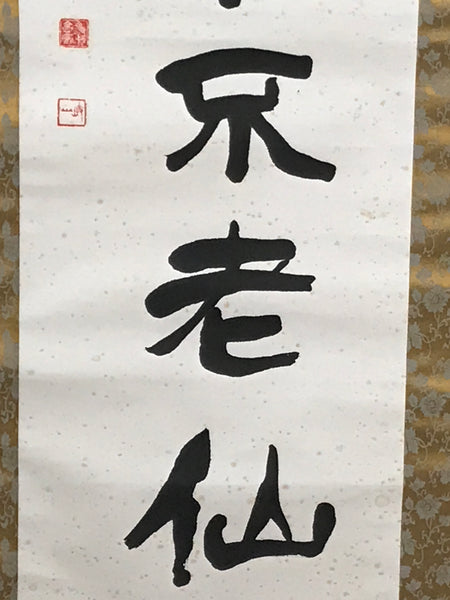 不老仙